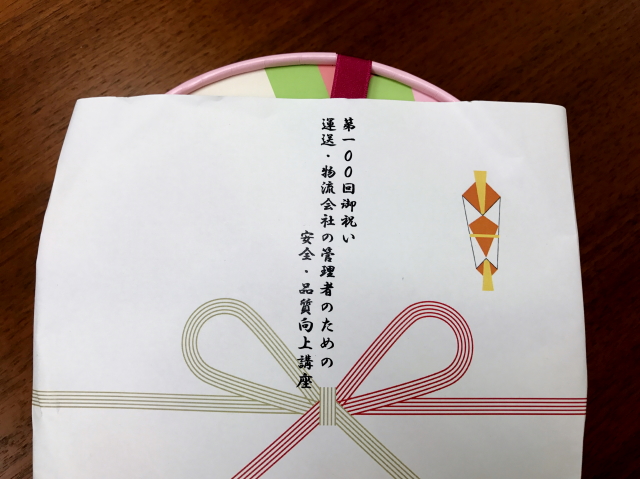 第一００回御祝い
運送・物流会社の管理者のための
安全・品質向上講座